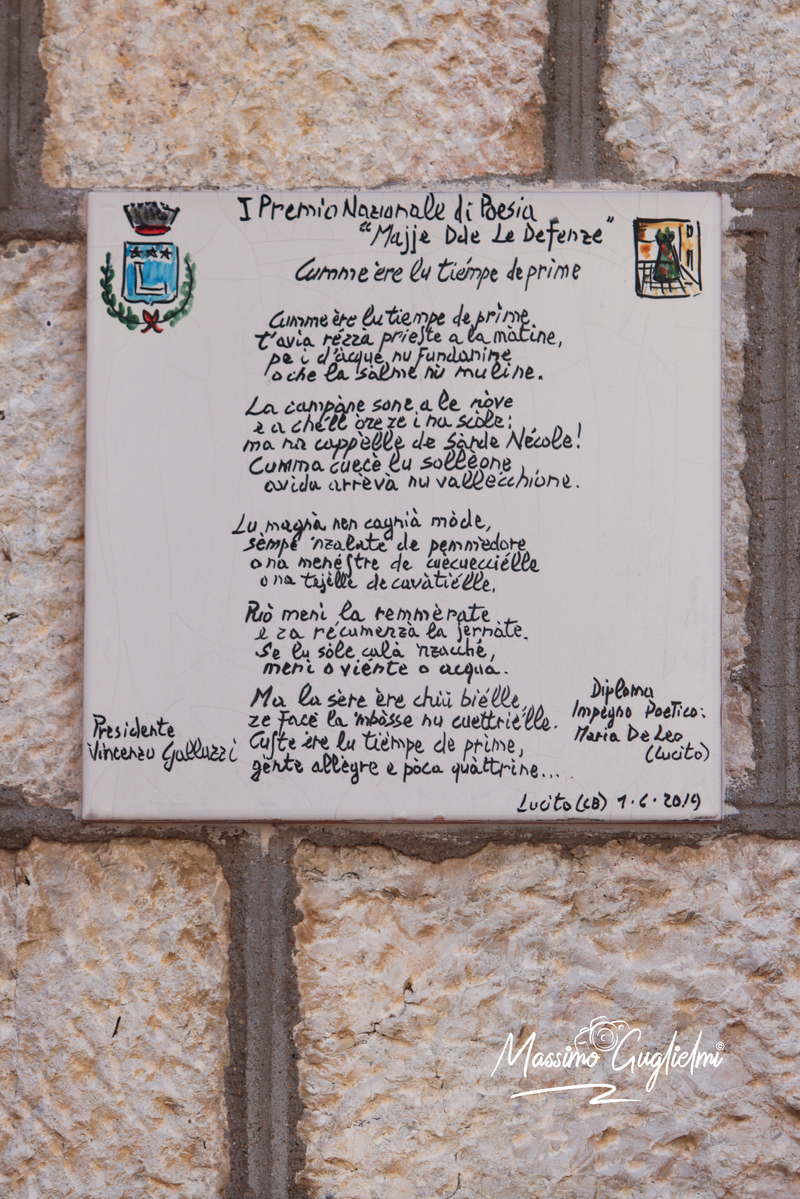 I Premio Nazionale di Poesia
"Majje Dde Le Defenze"
Cumme ère lu tiémpe de prime
Cumme ère lu tiempe de prime,
t'avia rézzà prieste a la màtine,
pe i d'àcque nu fundanine
o che la sàlme nu muline.
La campàne sone a le nòve
e a chell'òre ze i na scòle;
ma na cappèlle de Sànde Nécole!
Cumma cuecè lu sollèone
avida arrèvà nu vallecchione.
Lu magnà nen cagnià mòde,
sèmpe 'nzalate de pemmedore
o na menéstre de cuecuecciélle
o na tejèlle de cavàtiélle.
Può menì la remmèrate
e za récumenzà la jernàte.
Se lu sòle calà 'nzacché,
menì o viénte o acqua.
Ma la sère ère chiù biélle,
ze facè la 'mbàsse nu cuettriélle.
Custe ère lu tièmpe de prime,
gènte allègre e pòca quàttrine...
Presidente
Vincenzo Galluzzi
Diploma
Impegno Poetico:
Maria De Leo
(Lucito)
Lucito (CB) 1.6.2019
Massimo Guglielmi ©